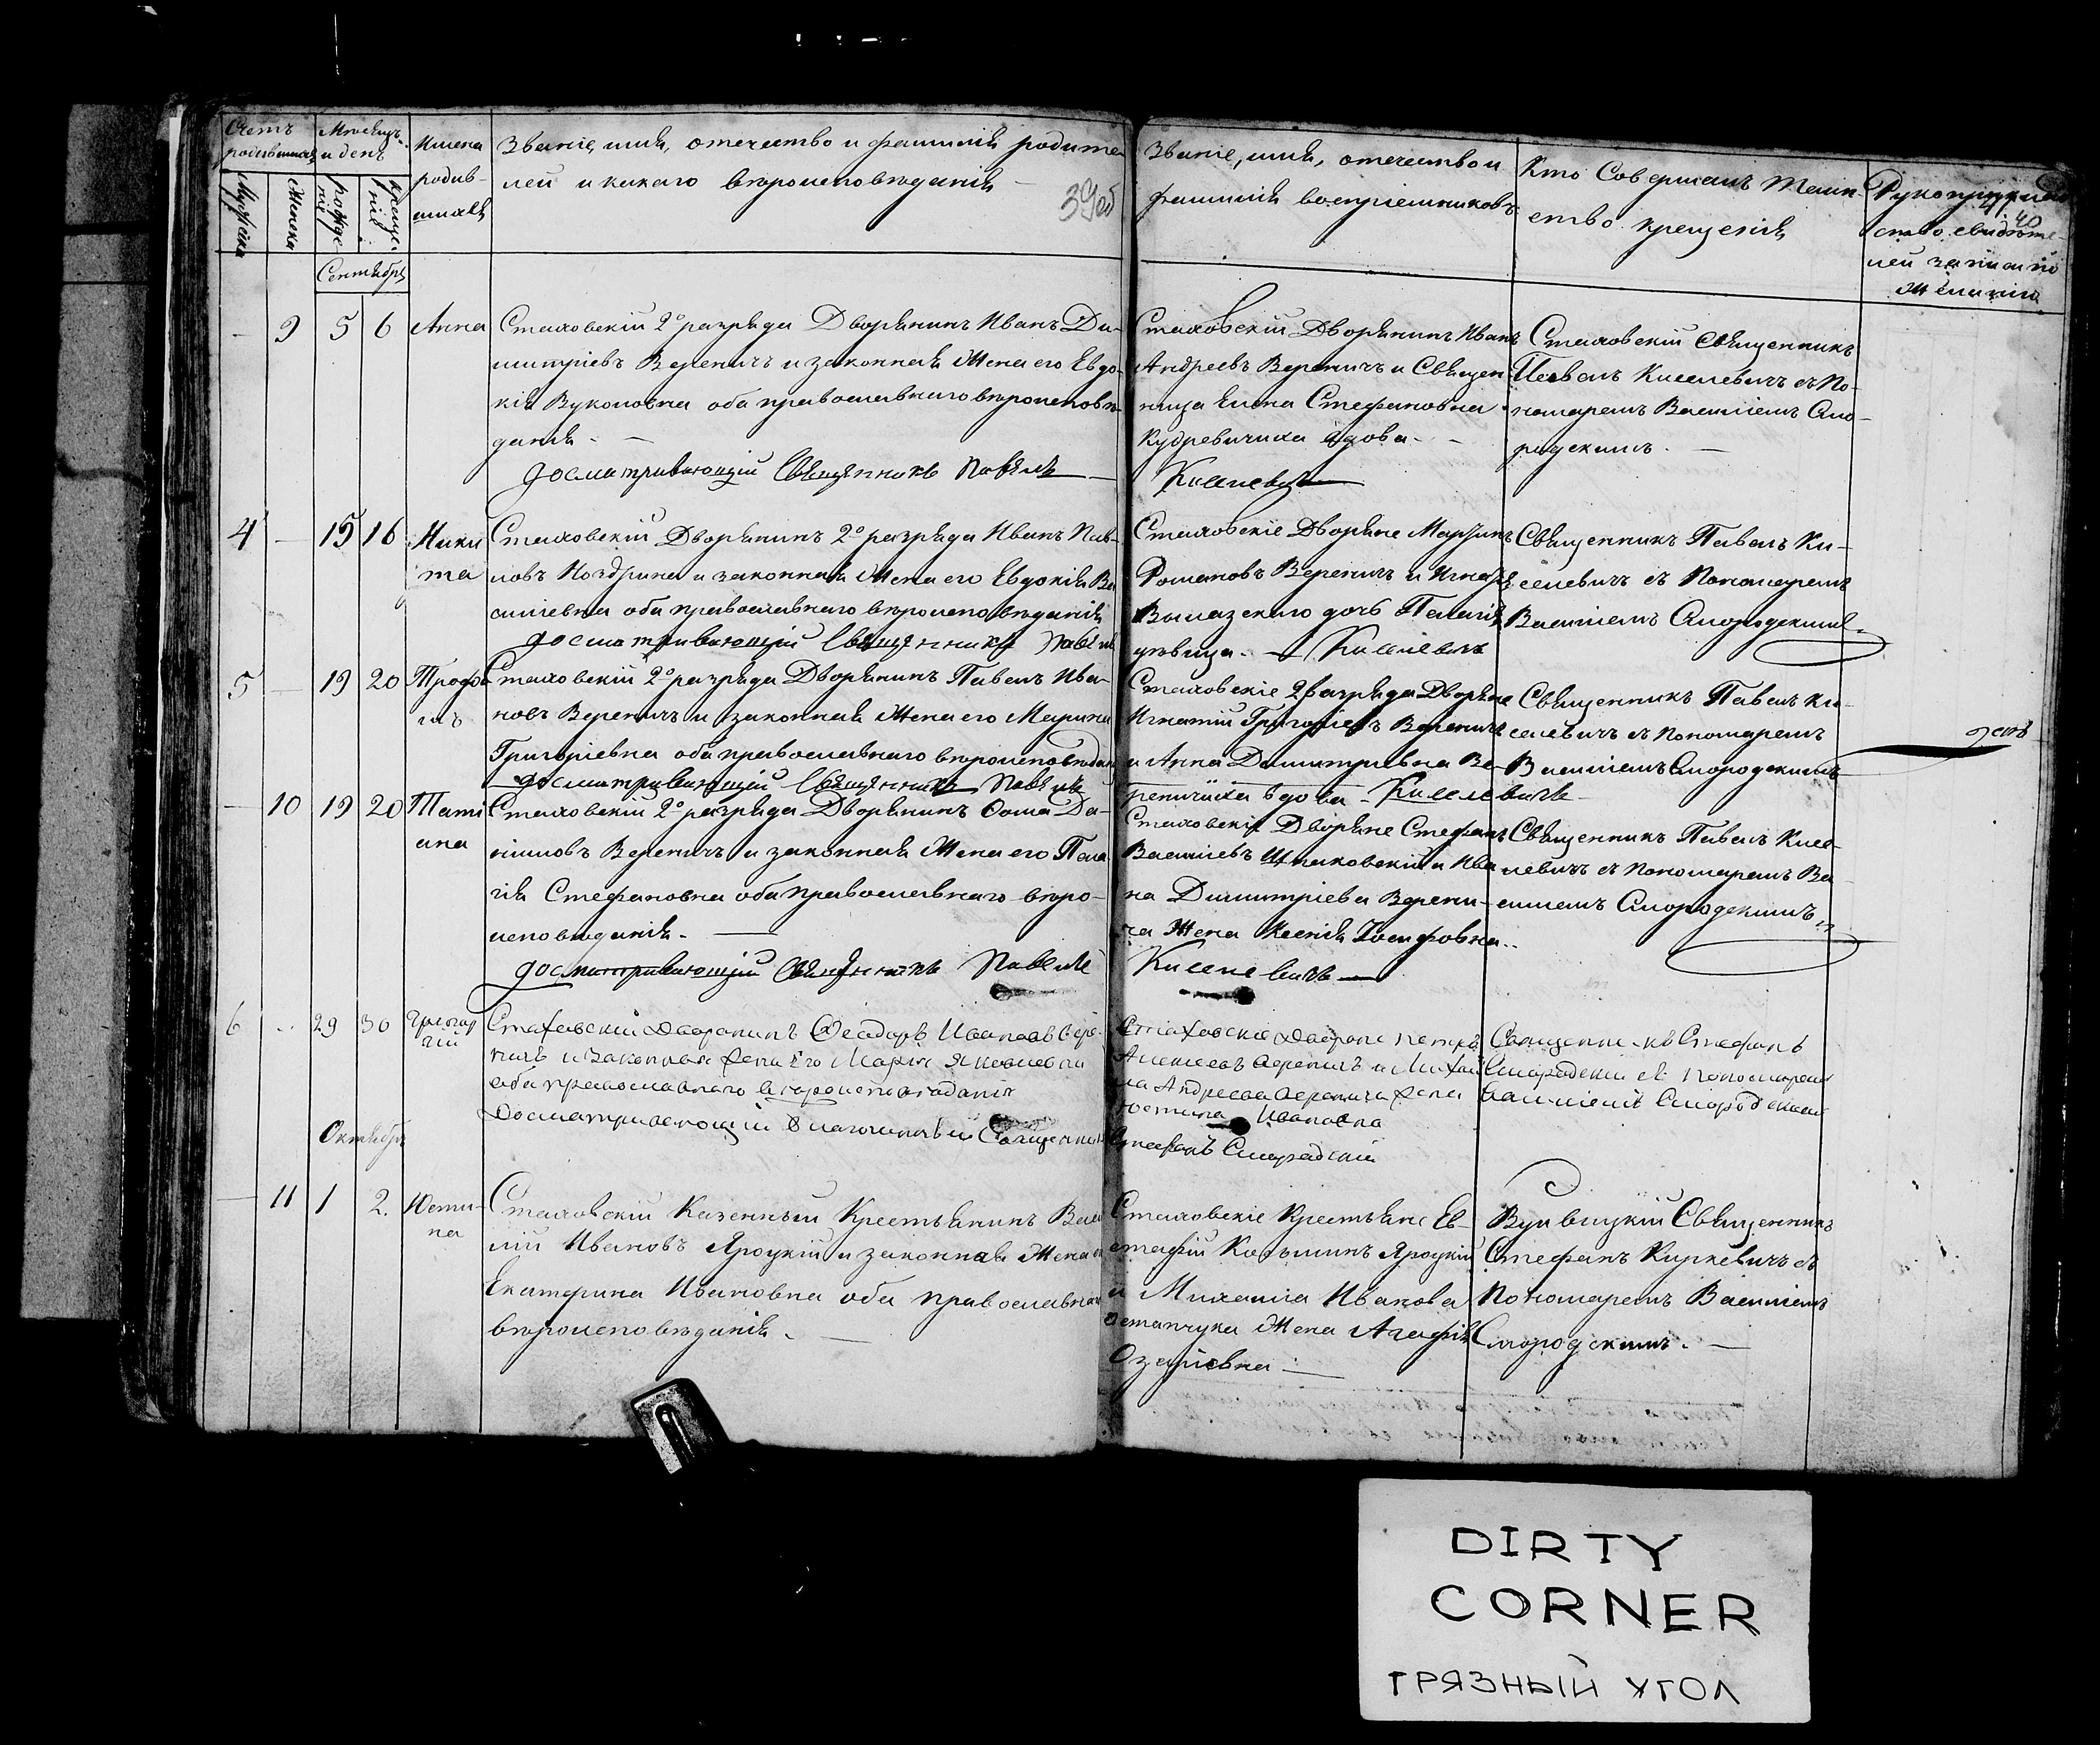 Счетъ родившихся
Мѣсяцъ и день
Имена родив-
шихся
Званіе, имя, отечество и фамилія родите-
лей и какого вѣроисповѣданія
39об
Званіе, имя, отечество и
фамилія воспріемниковъ
Кто Совершалъ Таин
ство крещенія
Рукоприклад
ство свидѣте-
лей записи по
желанію
40
Мужеска
Женска
рожде
нія
креще
нія
Сентябрь
— 9 5 6 Анна
Стаховскій 2º разряда Дворянинъ Иванъ Ди-
митріевъ Вереничъ и законная Жена его Евдо-
кія Вуколовна оба православнаго вѣроисповѣ-
данія. —
досматривающій Священникъ Павелъ
Стаховскій Дворянинъ Иванъ
Андреевъ Вереничъ и Священ
ница Елена Стефановна
Кудревичиха вдова. —
Киселевичъ
Стаховскій Священникъ
Павелъ Киселевичъ съ По-
номаремъ Василіемъ Смо-
родскимъ. —
4 — 15 16 Ники
та
Стаховскій Дворянинъ 2º разряда Иванъ Пав-
ловъ Ноздрина и законная Жена его Евдокія Ва
силіевна оба православнаго вѣроисповѣданія
досматривающій Священникъ Павелъ
Стаховскіе Дворяне Мартинъ
Романовъ Вереничъ и Игнатія
дочь Пелагія
дѣвица. — Киселевичъ
Священникъ Павелъ Ки-
селевичъ съ Пономаремъ
Василіемъ Смородскимъ
5 — 19 20 Трофи
мъ
Стаховскій 2º разряда Дворянинъ Павелъ Ива-
новъ Вереничъ и законная Жена его Марина
Григоріевна оба православнаго вѣроисповѣдан
досматривающій Священникъ Павелъ
Стаховскіе 2 разряда Дворяне
Игнатій Григоріевъ Вереничъ
и Анна Димитріевна Ве-
реничиха вдова — Киселевичъ
Священникъ Павелъ Ки-
селевичъ съ Пономаремъ
Василіемъ Смородскимъ
— 10 19 20 Таті
ана
Стаховскій 2º разряда Дворянинъ Ѳома Да-
ніиловъ Вереничъ и законная Жена его Пела
гія Стефановна оба православнаго вѣро-
исповѣданія. —
досматривающій Священникъ Павелъ
Стаховскіе Дворяне Стефанъ
Василіевъ Шпаковскій и Ива
на Димитріева Верени-
ча Жена Ксенія Іосифовна..
Киселевичъ —
Священникъ Павелъ Кисе-
левичъ съ Пономаремъ Ва
силіемъ Смородскимъ
6 .. 29 30 Григор
ій
Стаховскій Дворянинъ Ѳеодоръ Ивановъ Вере-
ничъ и законная жена его Марія Яковлевна
оба православнаго вѣроисповѣданія
Досматривающій Благочинный Священникъ
Стаховскіе Дворяне Петръ
Алексеевъ Вереничъ и Михаи
ла Андреева Веренича жена
Юстина Ивановна
Стефанъ Смородскій
Священникъ Стефанъ
Смородскій съ Пономаремъ
Василіемъ Смородскимъ
Октябрь
— 11 1 2. Юсти-
на
Стаховскій Казенный Крестьянинъ Васи
лій Ивановъ Яроцкій и законная Жена его
Екатерина Ивановна оба православнаго
вѣроисповѣданія. —
Стаховскіе Крестьяне Ев-
стафій Козьминъ Яроцкій
и Михаила Иванова
Остапчука Жена Агафія
Озаріевна —
Священникъ
Стефанъ Киркевичъ съ
Пономаремъ Василіемъ
Смородскимъ. —
DIRTY
CORNER
ГРЯЗНЫЙ УГОЛ